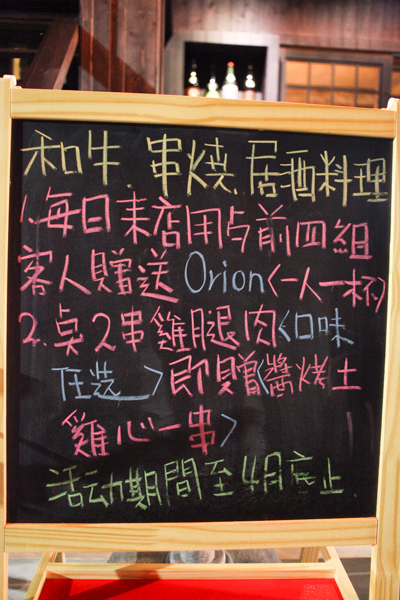 和牛.串燒.居酒料理
1.每日来店用占前四組
客人贈送 Orion<一人一杯>
2.点2串雞腿肉<口味
任选>即贈<醬烤土
雞心一串>
活动期間至4月底止.